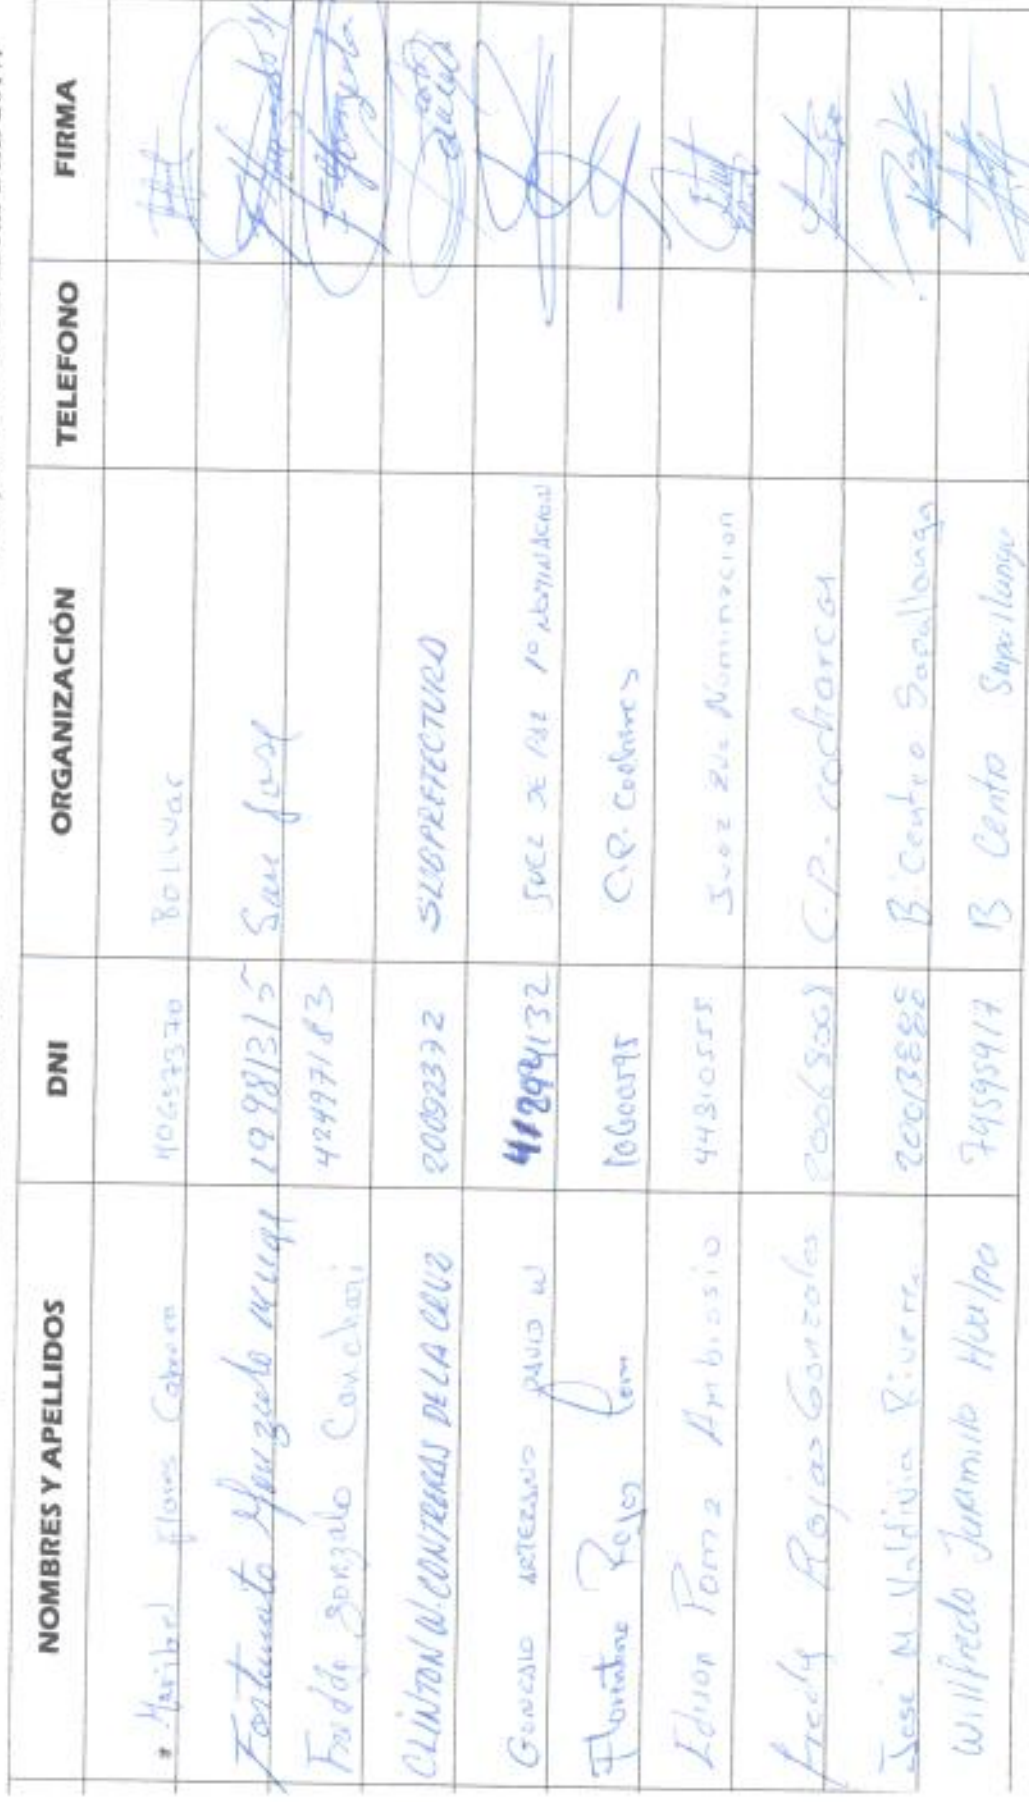 NOMBRES Y APELLIDOS DNI ORGANIZACIÓN TELEFONO FIRMA
Maribel Flores 40657370 Bolivar
Fortunato Gonzalo 19981315 San José
Freddy Gonzalo Canchari 42497183
CLINTON W. CONTRERAS DE LA CRUZ 20092372 SUBPREFECTURA
GONZALO ARTEZANO DAVID W 41299132 JUEZ DE PAZ 1º NOMINACION
Florentino Rojas 10600595 C.P.
Edison Poma Ambrosio 44310555 Juez 2da Nominacion
Fredy Rojas Gonzales C.P. cocharcas
José M. Valdivia Rivera B. Centro Sapallanga
Wilfredo Jaramillo Huallpa 74595417 B Centro Sapallanga